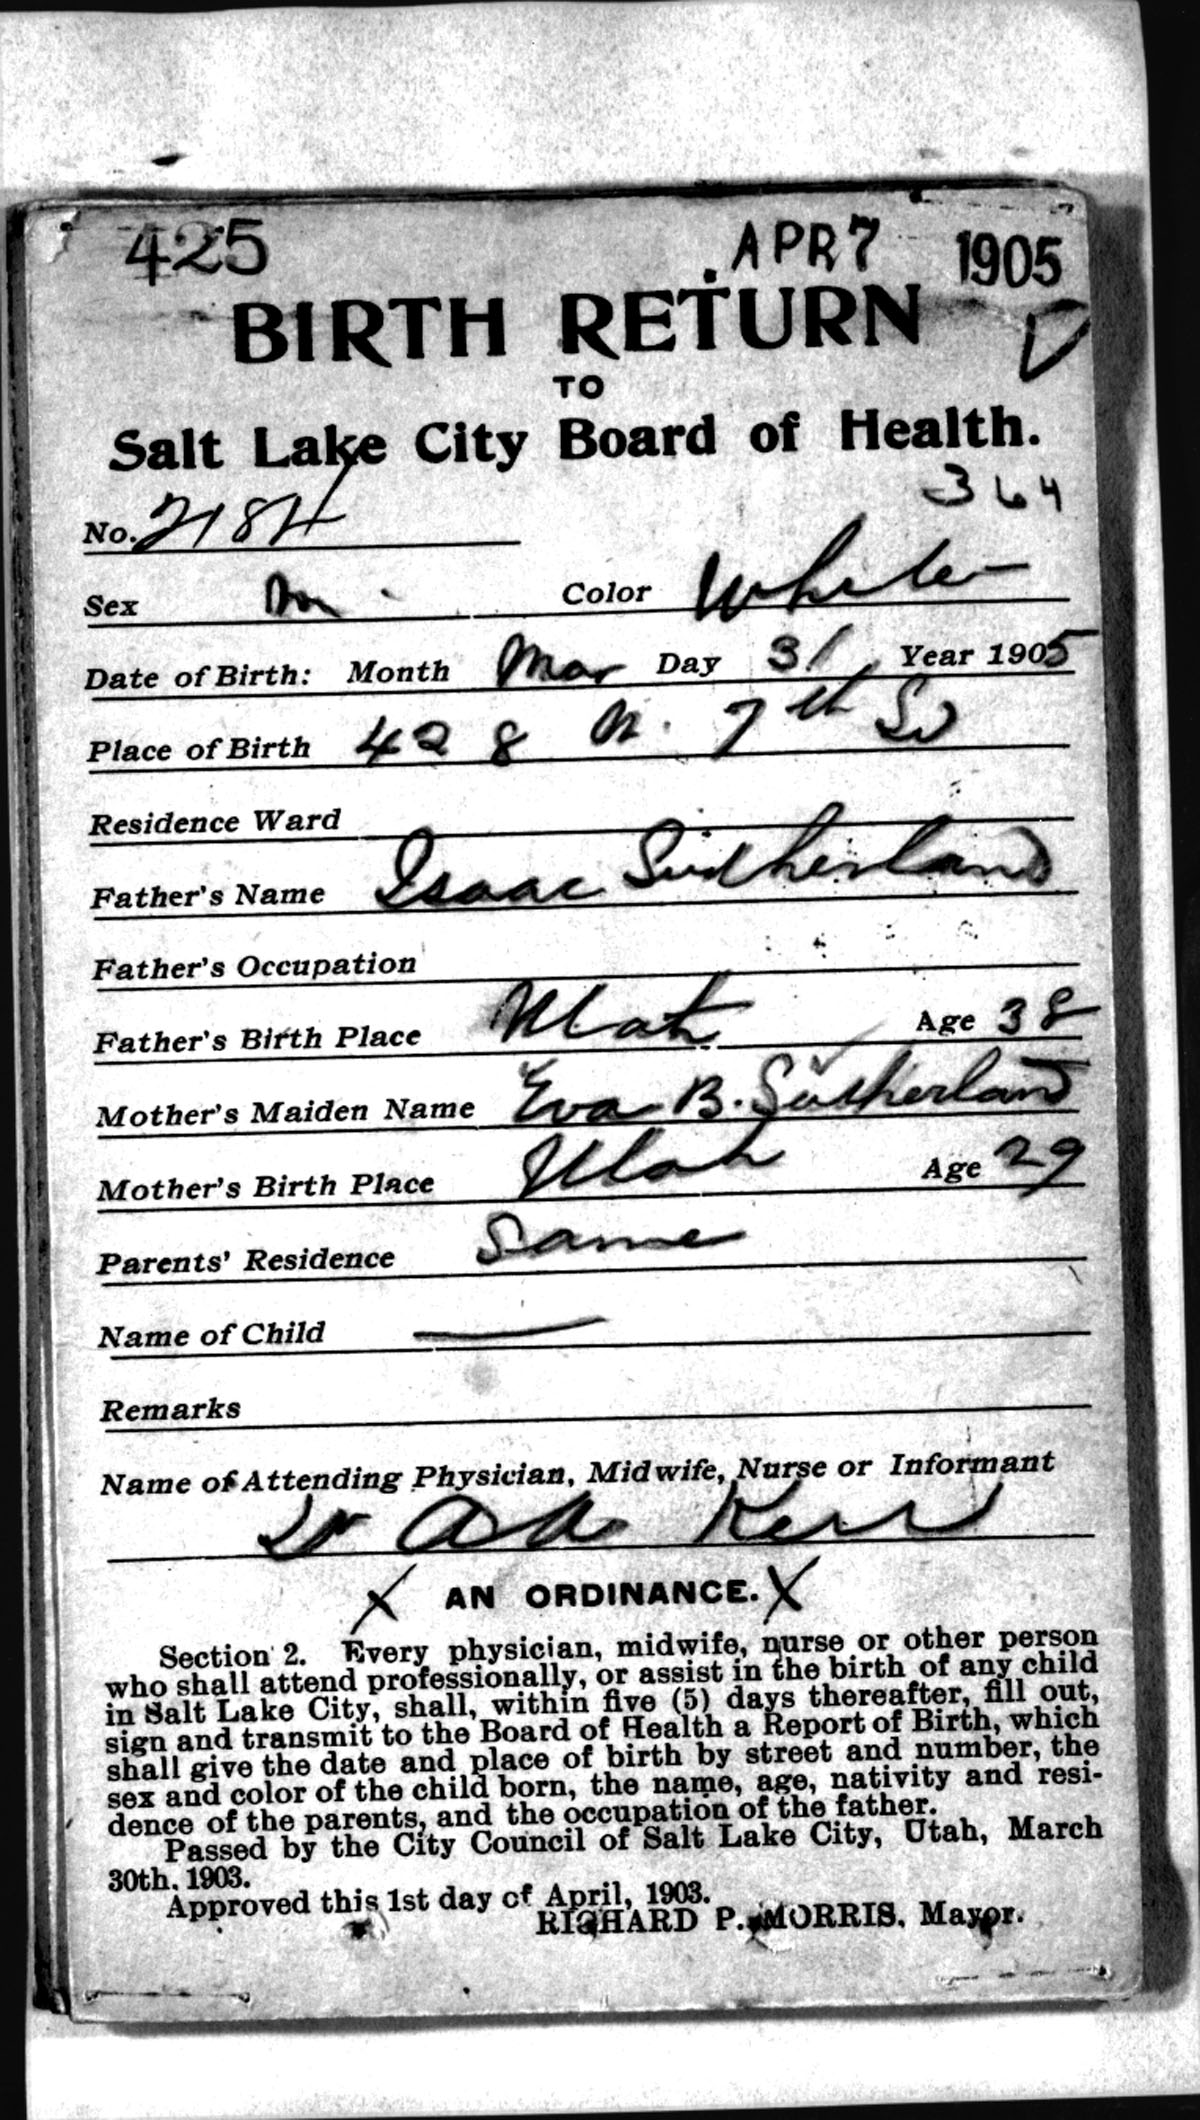 425 APR 7 1905
BIRTH RETURN
TO
Salt Lake City Board of Health.
364
No. 2184
Sex m Color White
Date of Birth: Month Mar Day 31 Year 1905
Place of Birth 428 N. 7th So
Residence Ward
Father's Name Isaac Sutherland
Father's Occupation
Father's Birth Place Utah Age 38
Mother's Maiden Name Eva B. Sutherland
Mother's Birth Place Utah Age 29
Parents' Residence Same
Name of Child —
Remarks
Name of Attending Physician, Midwife, Nurse or Informant
Dr Kerr
X AN ORDINANCE. X
Section 2. Every physician, midwife, nurse or other person
who shall attend professionally, or assist in the birth of any child
in Salt Lake City, shall, within five (5) days thereafter, fill out,
sign and transmit to the Board of Health a Report of Birth, which
shall give the date and place of birth by street and number, the
sex and color of the child born, the name, age, nativity and resi-
dence of the parents, and the occupation of the father.
Passed by the City Council of Salt Lake City, Utah, March
30th. 1903.
Approved this 1st day of April, 1903.
RICHARD P. MORRIS, Mayor.